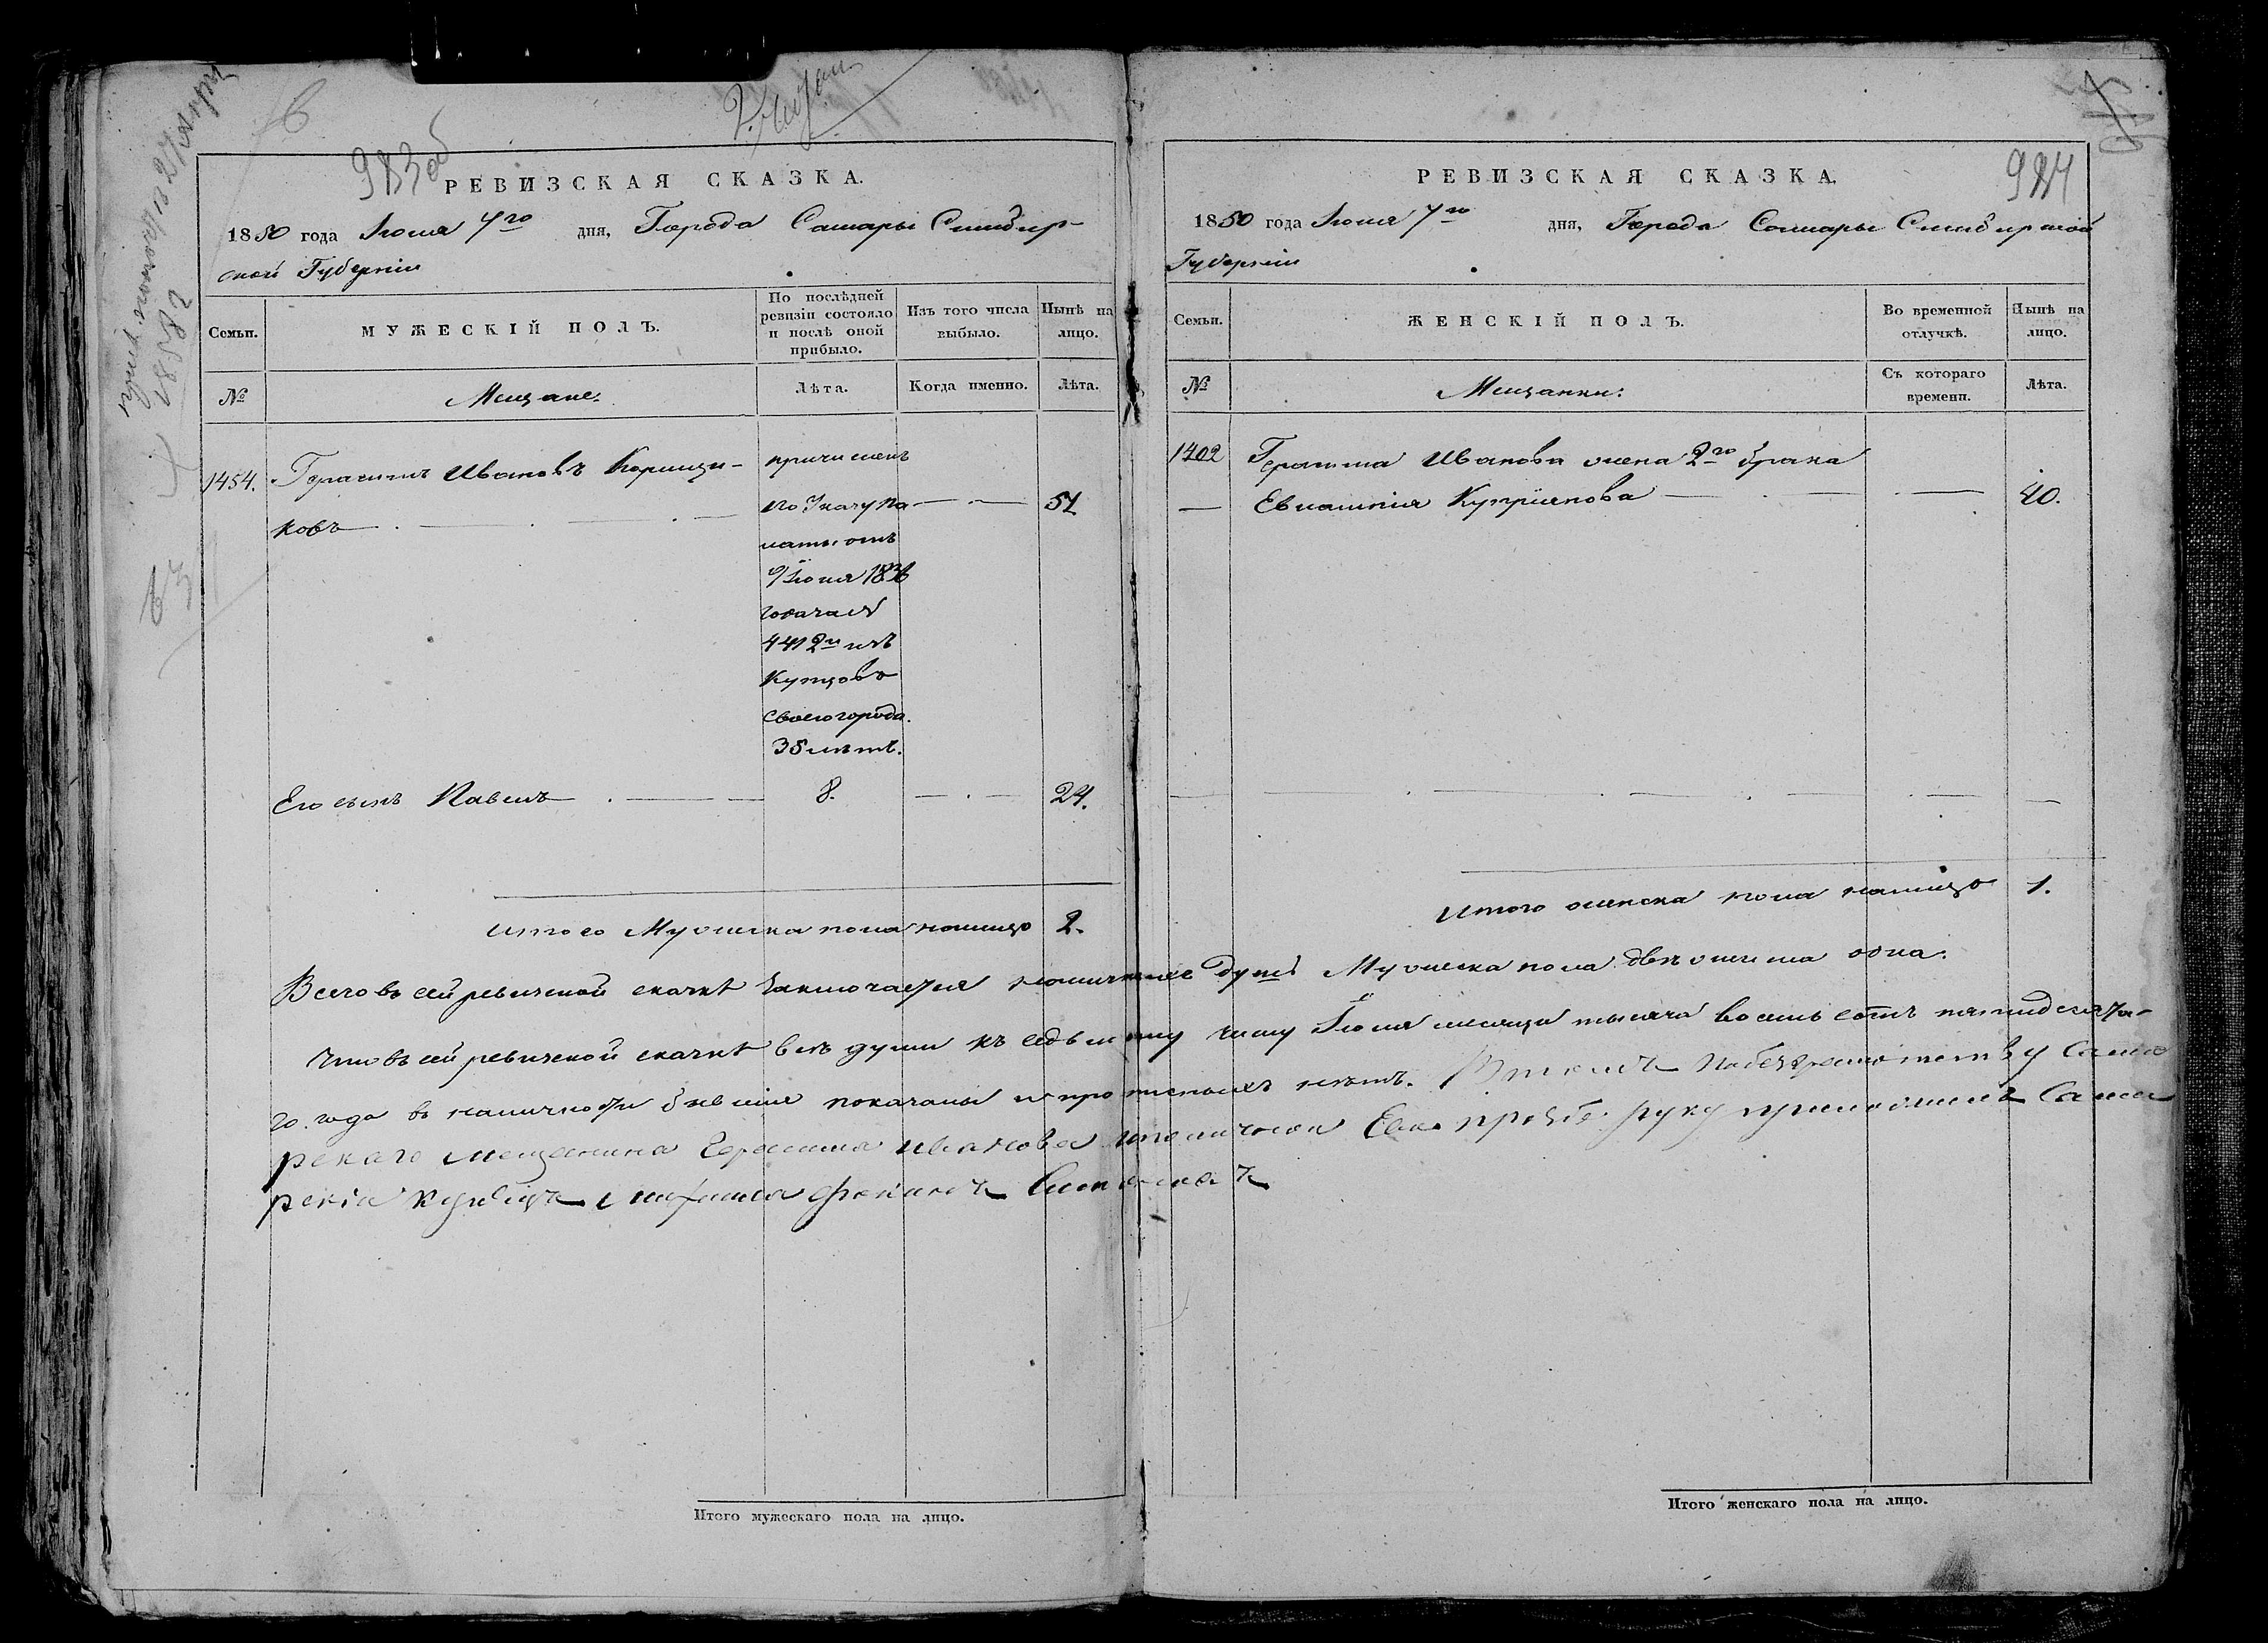 983 об
РЕВИЗСКАЯ СКАЗКА.
1850 года Июня 7го дня, Города Самары Симбир-
ской Губернии
Семьи.
МУЖЕСКІЙ ПОЛЪ.
По послѣдней ревизіи состояло и послѣ оной прибыло.
Изъ того числа выбыло.
Нынѣ на лицо.
№
Мещане.
Лѣта.
Когда именно.
Лѣта.
1454. Герасимъ Ивановъ
ковъ 51
причисленъ
по Указу Па
латы отъ
9 Июня 1836
года за №
4412м изъ
Купцовъ
своего города.
35 лѣтъ.
Его сынъ Павелъ 8. 24.
итого Мужеска пола налицо 2.
Итого мужескаго пола на лицо.
984
РЕВИЗСКАЯ СКАЗКА.
1850 года Июня 7го дня, Города Самары Симбирской
Губерніи
Семьи.
ЖЕНСКІЙ ПОЛЪ.
Во временной отлучкѣ.
Нынѣ на лицо.
№
Мещанки:
Съ котораго времени.
Лѣта.
1402 Герасима Иванова жена 2го брака
Евгенія Купріянова 40.
Итого женска пола налицо 1.
Всего въ сей ревизской сказкѣ заключается наличныхъ душъ Мужеска пола двѣ женска одна.
Что въ сей ревизской сказкѣ всѣ души къ седьмому числу Іюня месяца тысяча восемь сотъ пятидесята-
го года въ наличности бывшия показаны и прописныхъ нѣтъ. В томъ по безграмотству Сама
рскаго мещанина Герасима Иванова по личной Ево прозбе руку приложилъ Сама
рскій купецъ
Итого женскаго пола на лицо.